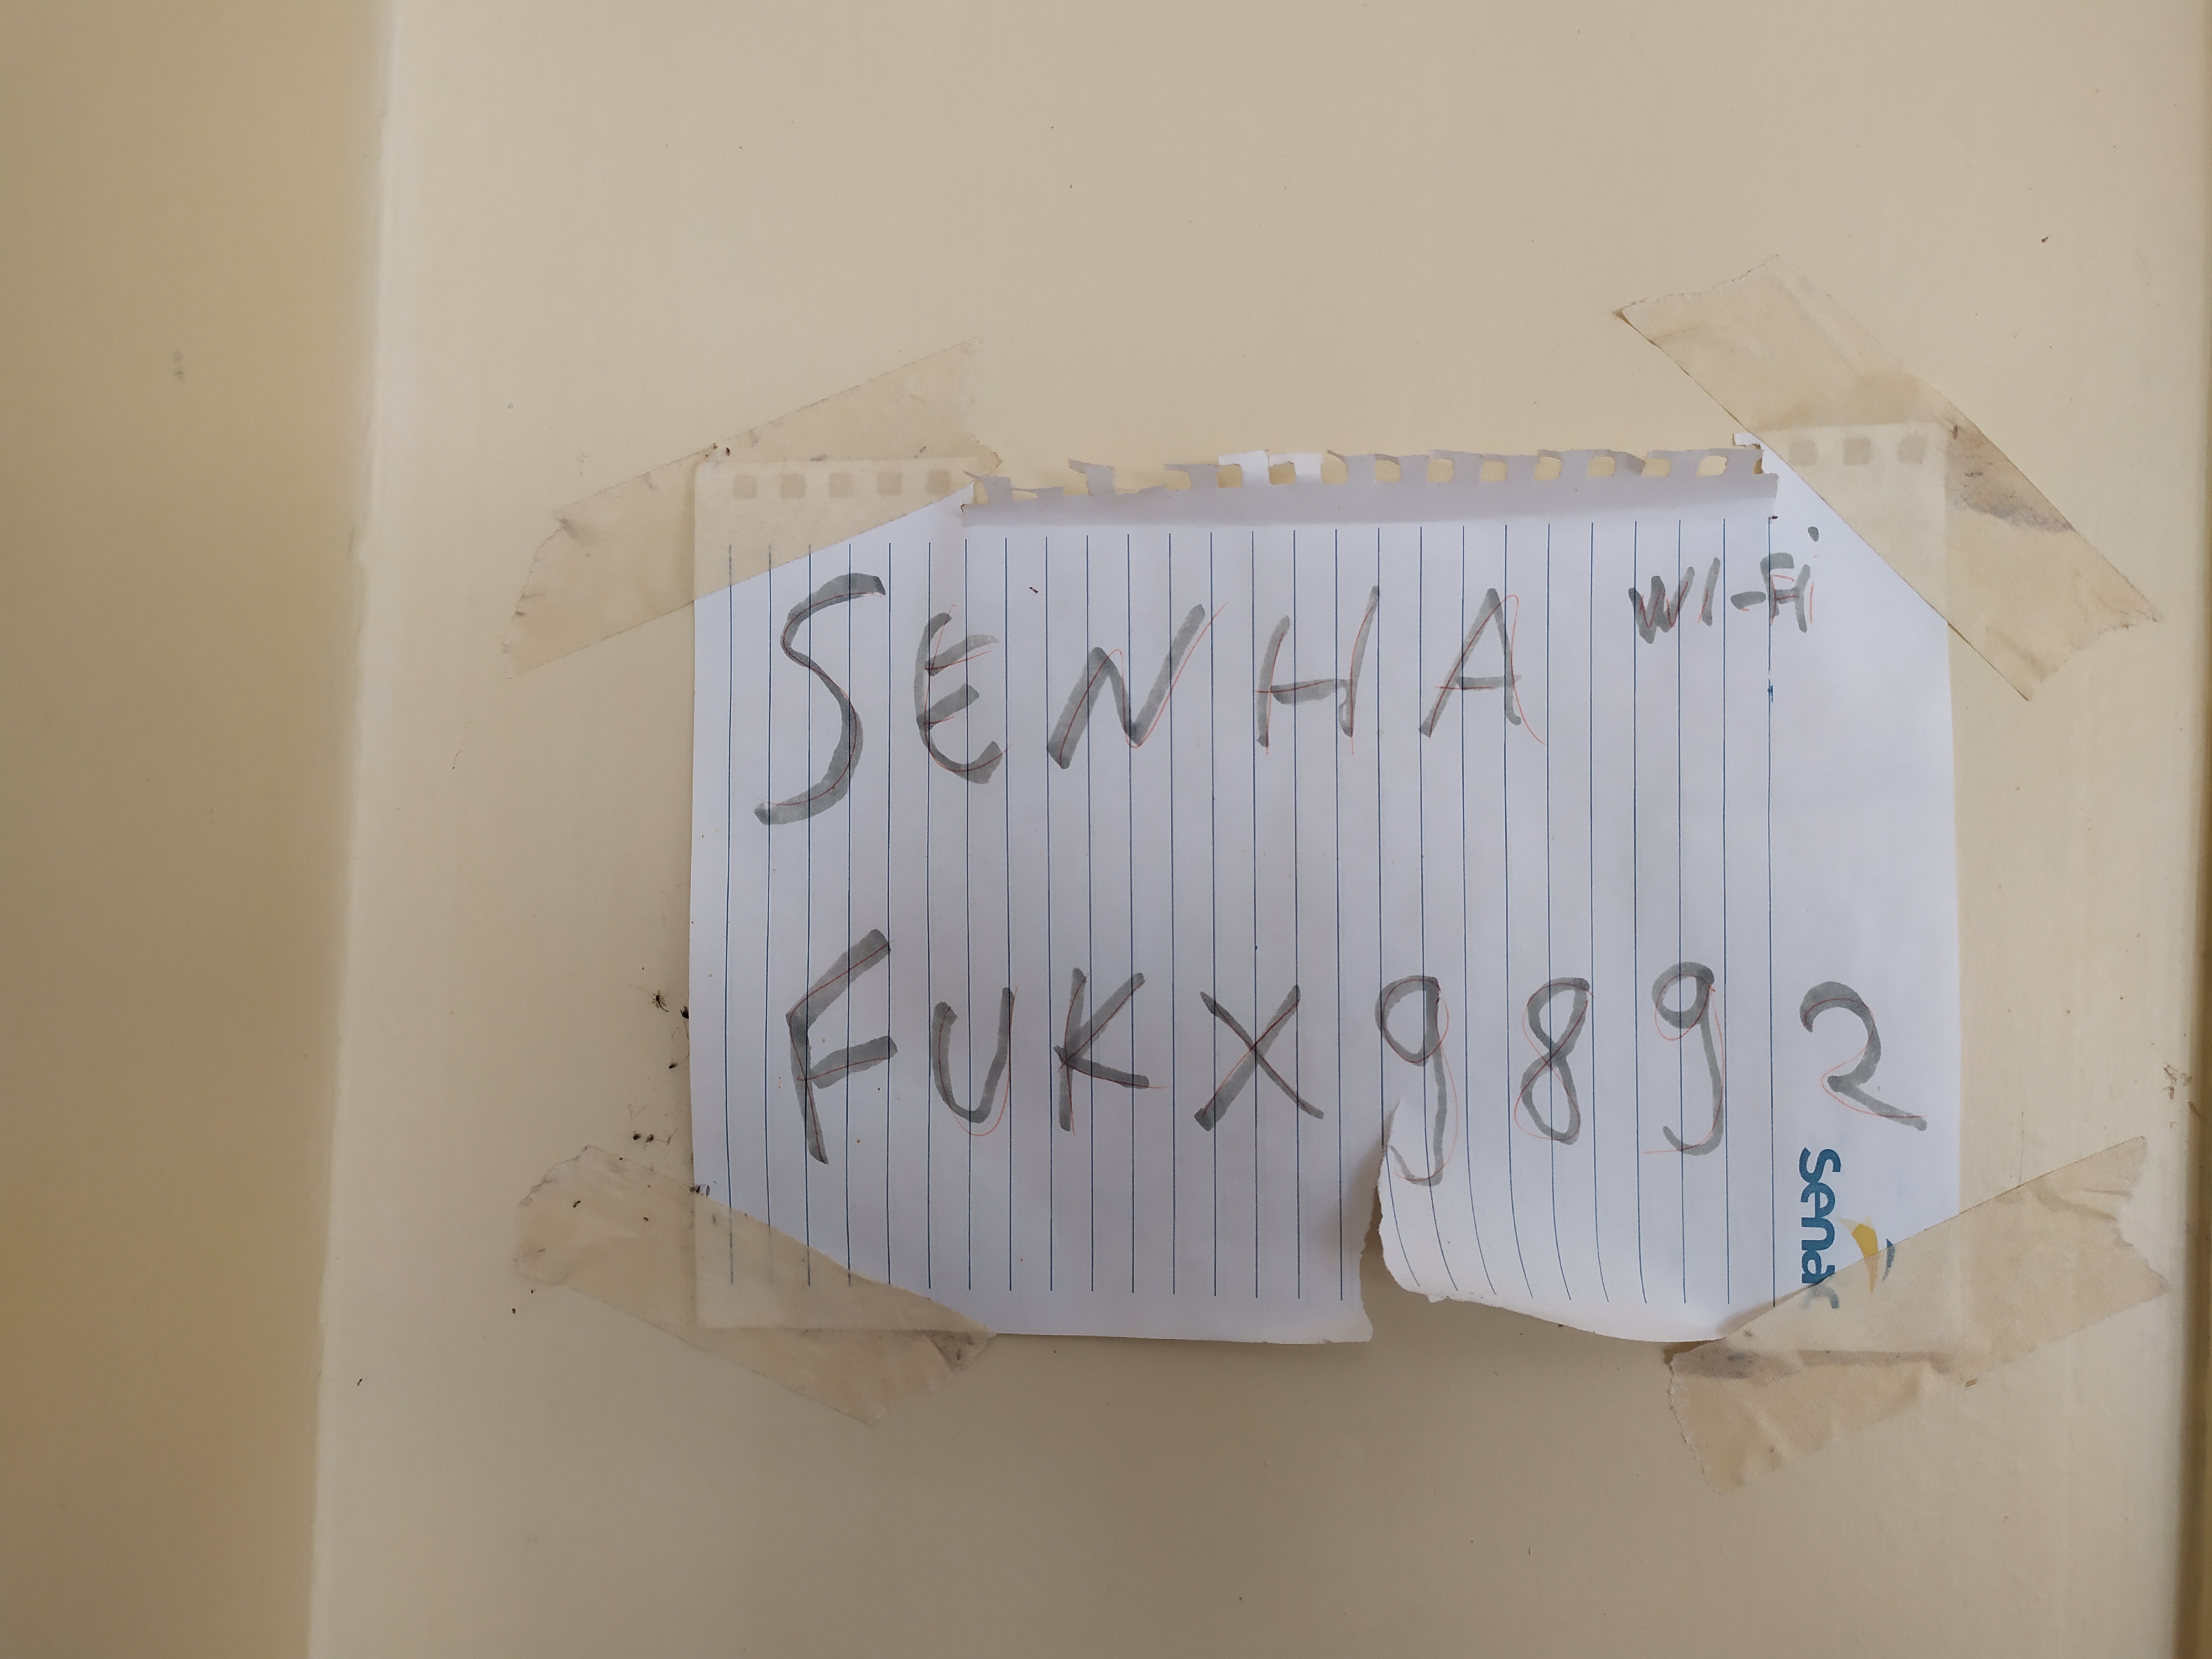 SENHA WI-Fi
FUKX9892
Senac